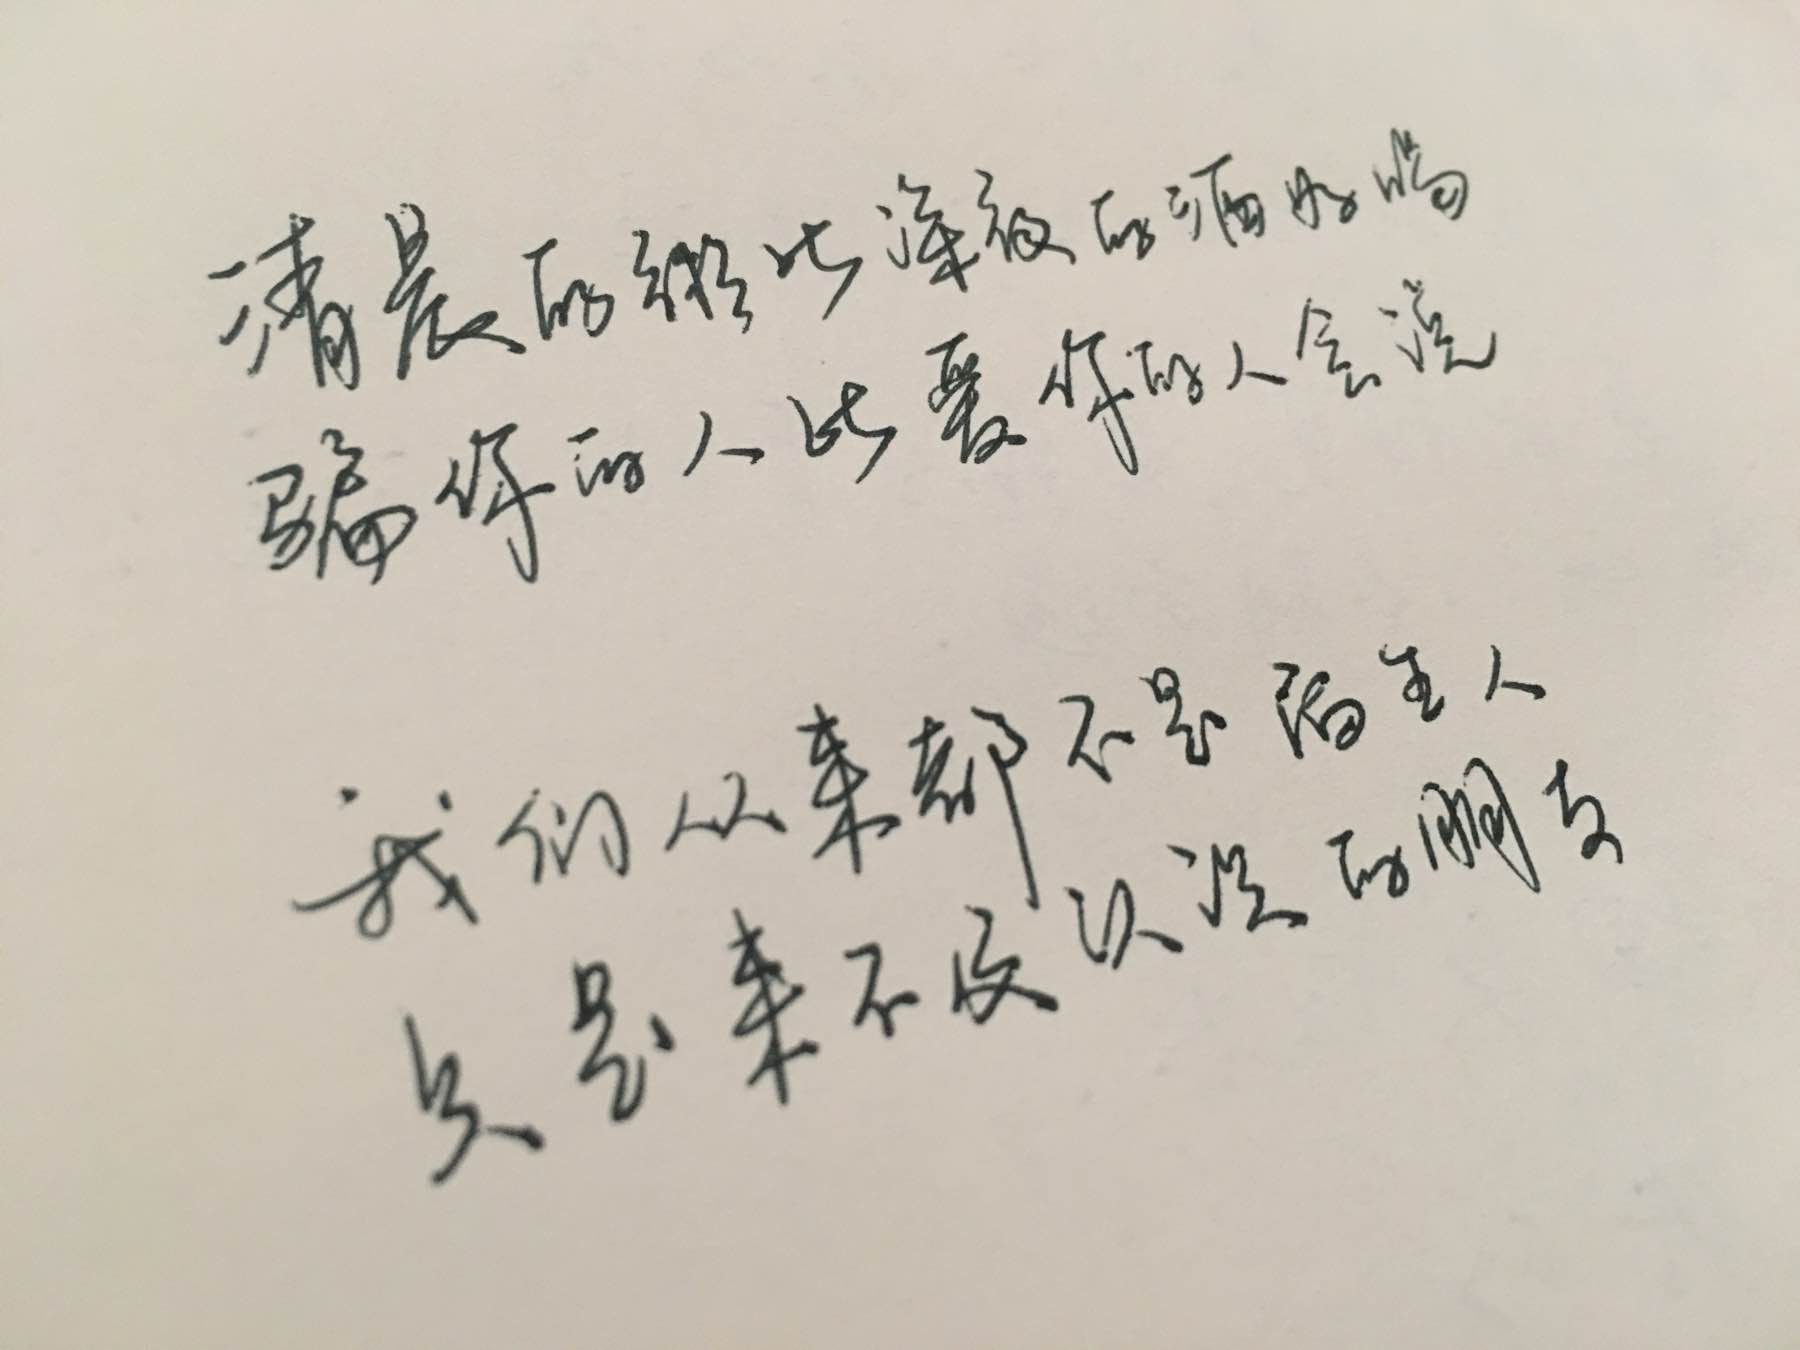 清晨的粥比深夜的酒好喝
骗你的人比爱你的人会说
我们从来都不是陌生人
只是来不及认识的朋友